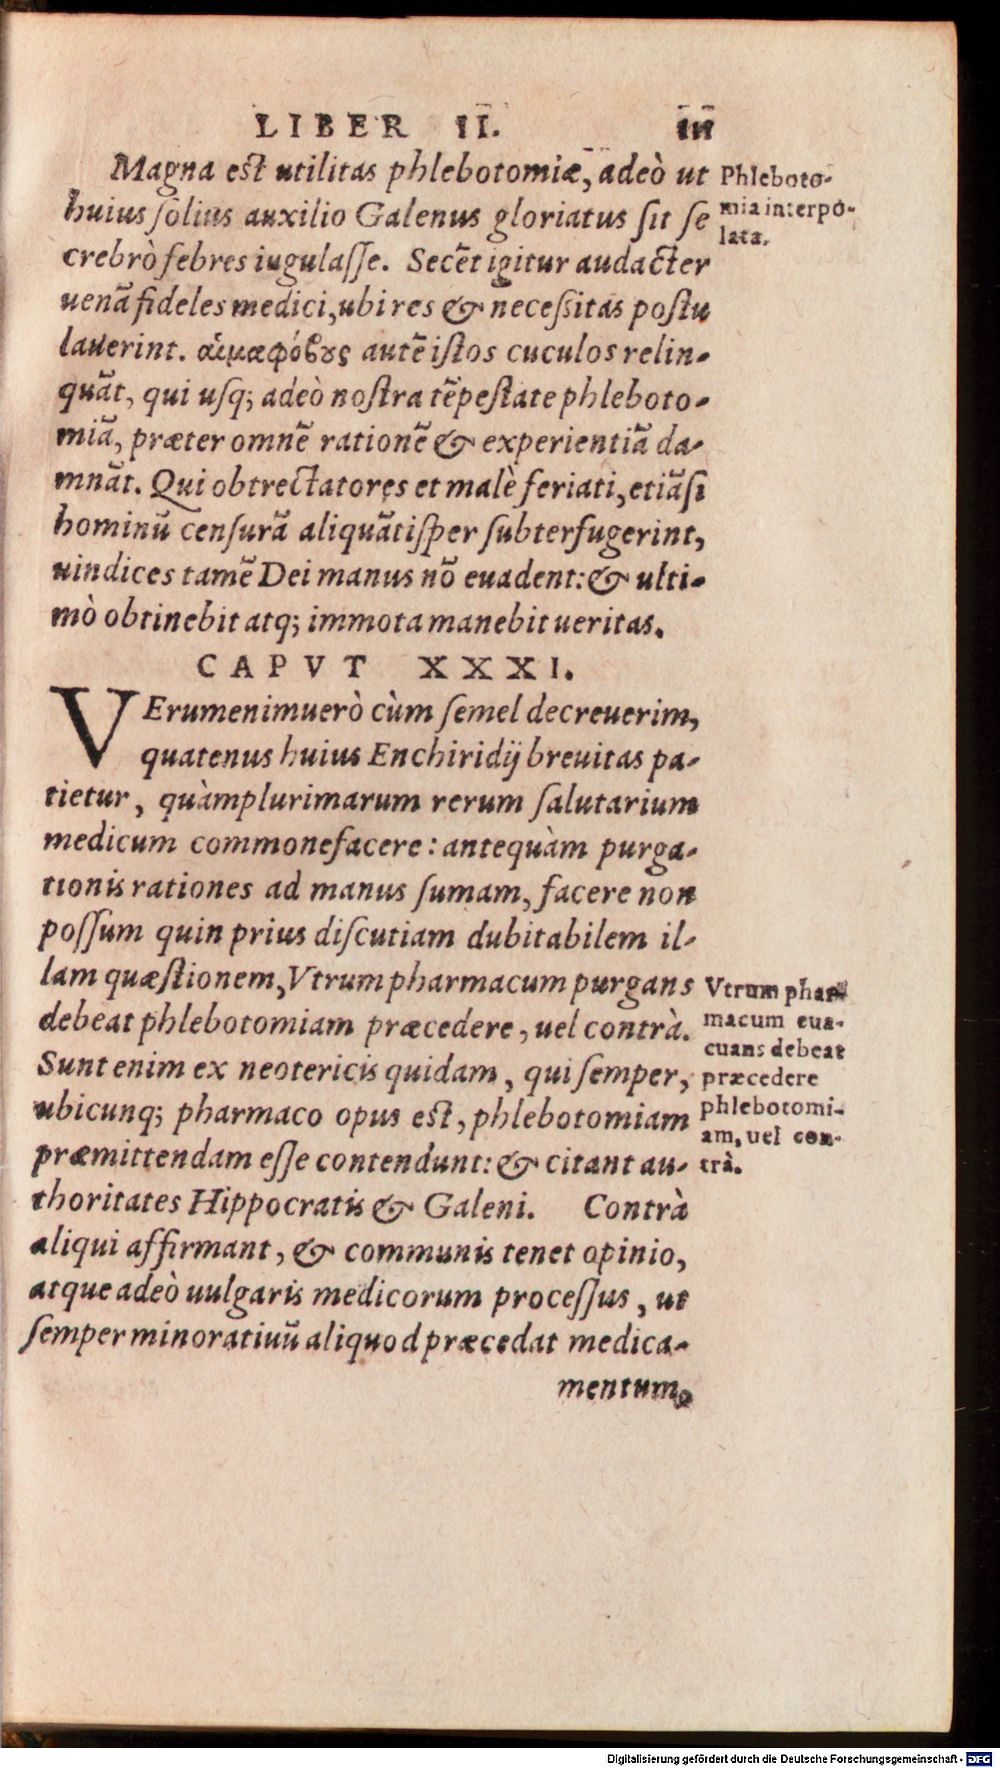 LIBER II. 111
Magna est utilitas phlebotomiæ, adeò ut
huius solius auxilio Galenus gloriatus sit se
crebrò febres iugulasse. Secēt igitur audacter
uenā fideles medici, ubi res & necessitas postu
lauerint. αἱμαφόβους autē istos cuculos relin-
quāt, qui usq; adeò nostra tēpestate phleboto-
miā, præter omnē rationē & experientiā da-
mnāt. Qui obtrectatores et malè feriati, etiāsi
hominū censurā aliquātisper subterfugerint,
uindices tamē Dei manus nō euadent: & ulti-
mò obtinebit atq; immota manebit ueritas.
Phleboto-
mia interpo-
lata.
CAPVT XXXI.
VErumenimuerò cùm semel decreuerim,
quatenus huius Enchiridij breuitas pa-
tietur, quàmplurimarum rerum salutarium
medicum commonefacere: antequàm purga-
tionis rationes ad manus sumam, facere non
possum quin prius discutiam dubitabilem il-
lam quæstionem, Vtrum pharmacum purgans
debeat phlebotomiam præcedere, uel contrà.
Sunt enim ex neotericis quidam, qui semper,
ubicunq; pharmaco opus est, phlebotomiam
præmittendam esse contendunt: & citant au-
thoritates Hippocratis & Galeni. Contrà
aliqui affirmant, & communis tenet opinio,
atque adeò uulgaris medicorum processus, ut
semper minoratiuū aliquod præcedat medica-
mentum,
Vtrum phar-
macum eua-
cuans debeat
præcedere
phlebotomi-
am, uel con-
trà.
Digitalisierung gefördert durch die Deutsche Forschungsgemeinschaft - DFG